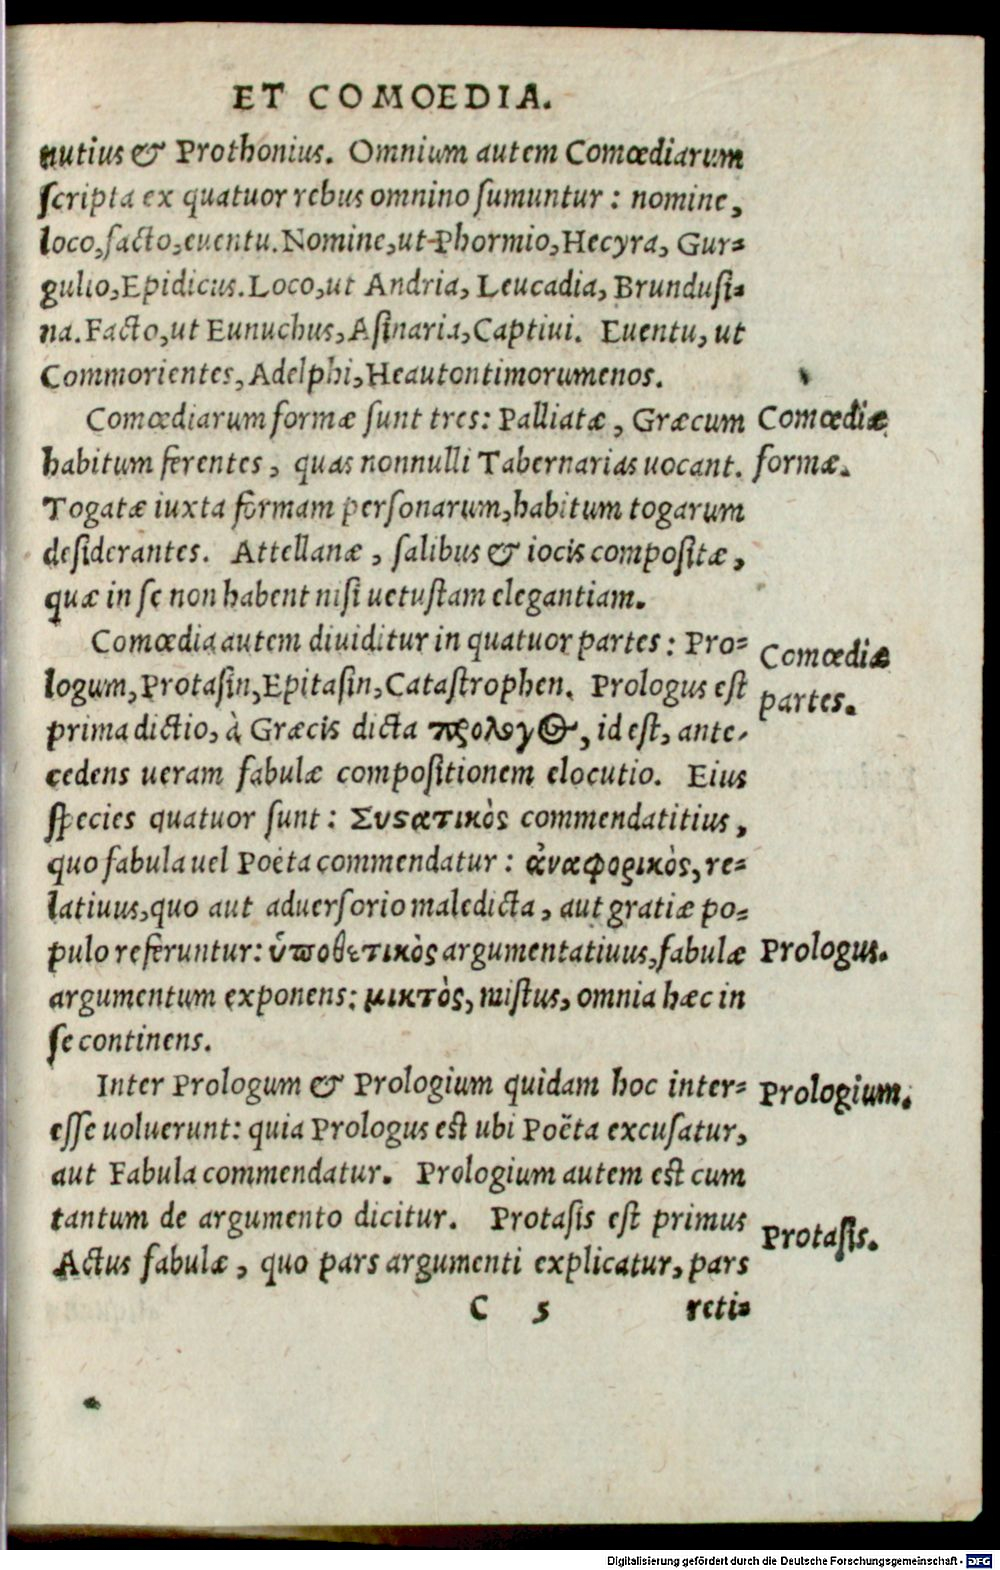 ET COMOEDIA.
nutius & Prothonius. Omnium autem Comœdiarum
scripta ex quatuor rebus omnino sumuntur: nomine,
loco, facto, euentu. Nomine, ut Phormio, Hecyra, Gur-
gulio, Epidicus. Loco, ut Andria, Leucadia, Brundusi-
na. Facto, ut Eunuchus, Asinaria, Captiui. Euentu, ut
Commorientes, Adelphi, Heautontimorumenos.
Comœdiarum formæ sunt tres: Palliatæ, Græcum
Comœdiæ
habitum ferentes, quas nonnulli Tabernarias uocant.
formæ.
Togatæ iuxta formam personarum, habitum togarum
desiderantes. Attellanæ, salibus & iocis compositæ,
quæ in se non habent nisi uetustam elegantiam.
Comœdia autem diuiditur in quatuor partes: Pro-
Comœdiæ
logum, Protasin, Epitasin, Catastrophen. Prologus est
partes.
prima dictio, à Græcis dicta πρόλογος, id est, ante-
cedens ueram fabulæ compositionem elocutio. Eius
species quatuor sunt: Συϛατικὸς commendatitius,
quo fabula uel Poëta commendatur: ἀναφορικὸς, re-
latiuus, quo aut aduersorio maledicta, aut gratiæ po-
pulo referuntur: ὑποθετικὸς argumentatiuus, fabulæ
Prologus.
argumentum exponens: μικτὸς, mistus, omnia hæc in
se continens.
Inter Prologum & Prologium quidam hoc inter-
Prologium.
esse uoluerunt: quia Prologus est ubi Poëta excusatur,
aut Fabula commendatur. Prologium autem est cum
tantum de argumento dicitur. Protasis est primus
Protasis.
Actus fabulæ, quo pars argumenti explicatur, pars
C 5 reti-
Digitalisierung gefördert durch die Deutsche Forschungsgemeinschaft - DFG